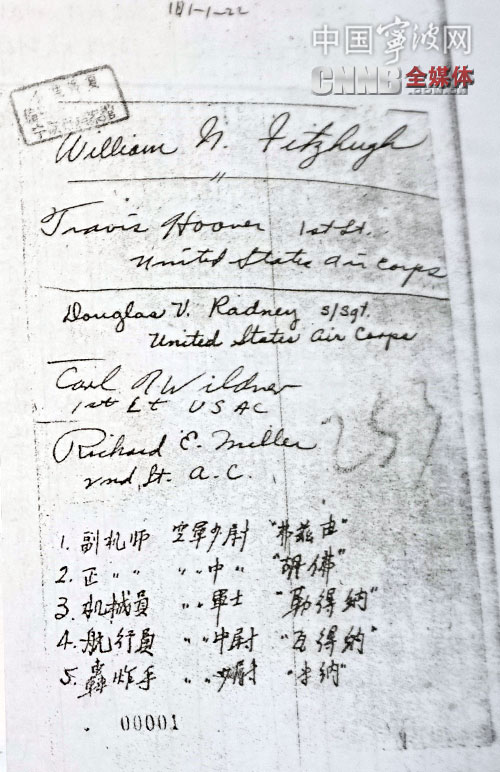 181-1-22
中国宁波网
CNNB 全媒体
.com.cn
William N. Fitzhugh
"
Travis Hoover 1st Lt.
United States Air Corps
Douglas V. Radney S/Sgt.
United States Air Corps
Carl N Wildner
1st Lt USAC
Richard E. Miller
2nd Lt. A.C.
253
1. 副机师 空軍少尉 "弗兹由"
2. 正 " " " " 中 " "胡佛"
3. 机械員 " " 軍士 "勒得納"
4. 航行員 " " 中尉 "瓦得納"
5. 轟炸手 " " 少尉 "米納"
00001